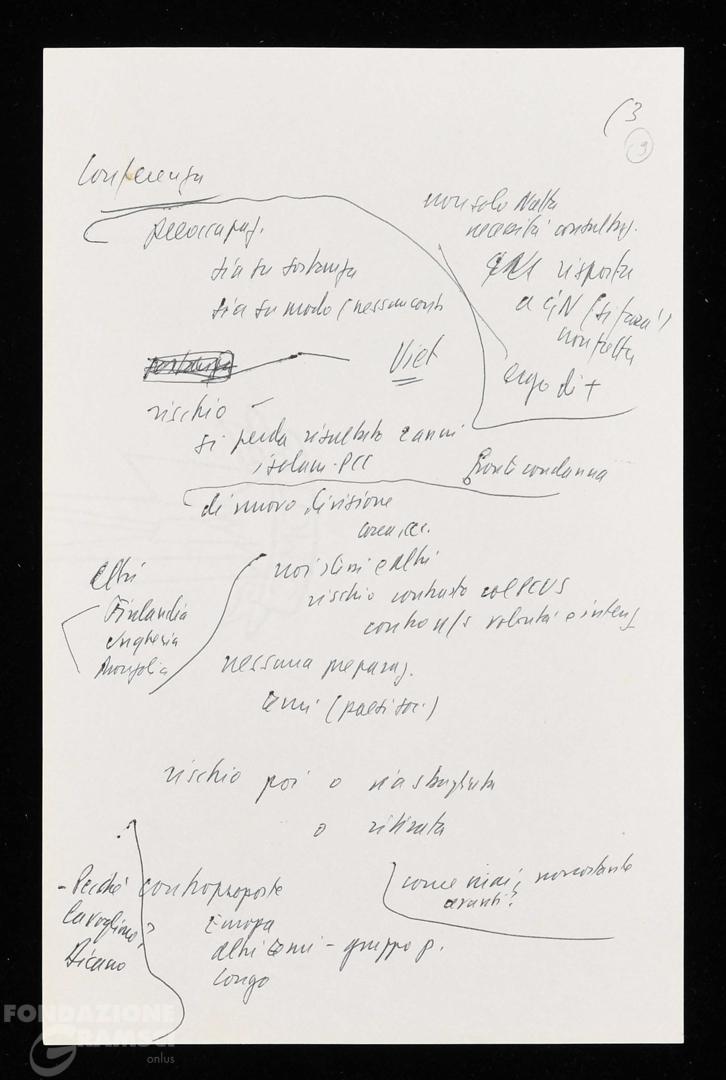 (3
9
Conferenza
preoccupaz.
sia su sostanza
sia su modo (nessun cont
non solo Natta
necessità consultaz.
risposta
a (si farà!)
non fretta
ergo di +
sostanza
Viet
rischio -
si perda risultato anni
isolam. PCC
Pronti condanna
di nuovo divisione
Corea, ecc.
altri
Finlandia
Ungheria
Mongolia
noi stessi e altri
rischio contrasto col PCUS
contro n/s volontà e intenz
nessuna preparaz.
temi (paesi soc.)
rischio poi o sia sbagliata
o ritirata
- Perché
la vogliono?
Dicano
controproposte
Europa
altri temi - gruppo p.
Longo
come mai, nonostante
avanti?
FONDAZIONE
GRAMSCI
onlus